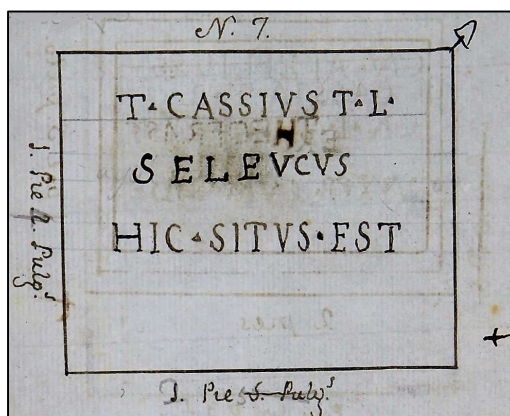 N. 7.
T · CASSIVS T · L ·
SELEVCVS
HIC · SITVS · EST
1. Pie 2. Pulg.s
1. Pie 5. Pulg.s